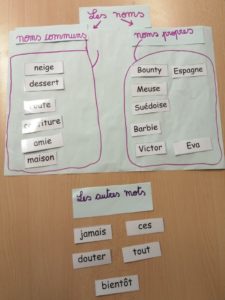 Les noms
noms communs
noms propres
neige
dessert
route
amie
maison
Bounty
Espagne
Meuse
Suédoise
Barbie
Victor
Eva
Les autres mots
jamais
ces
douter
tout
bientôt